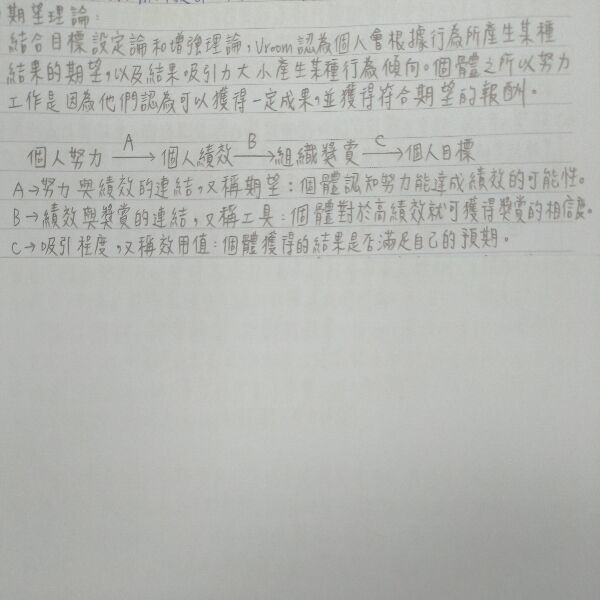 期望理論:
結合目標設定論和增強理論,Vroom認為個人會根據行為所產生某種
結果的期望,以及結果吸引力大小產生某種行為傾向。個體之所以努力
工作是因為他們認為可以獲得一定成果,並獲得符合期望的報酬。
個人努力 A→ 個人績效 B→ 組織獎賞 C→ 個人目標
A→努力與績效的連結,又稱期望:個體認知努力能達成績效的可能性。
B→績效與獎賞的連結,又稱工具:個體對於高績效就可獲得獎賞的相信度。
C→吸引程度,又稱效用值:個體獲得的結果是否滿足自己的預期。